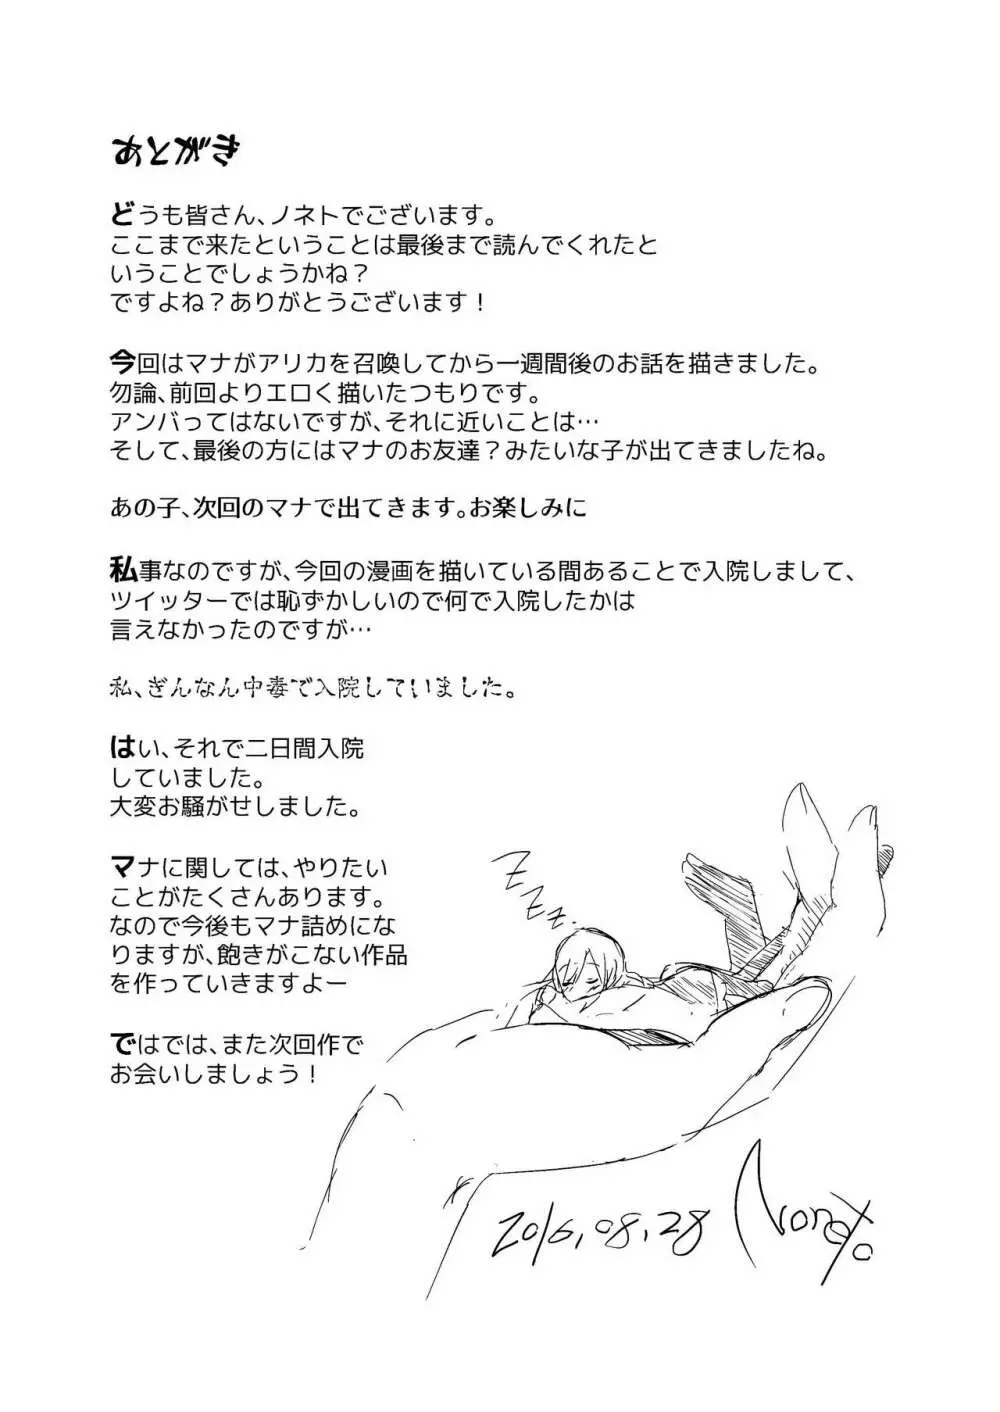 あとがき
どうも皆さん、ノネトでございます。
ここまで来たということは最後まで読んでくれたと
いうことでしょうかね？
ですよね？ありがとうございます！
今回はマナがアリカを召喚してから一週間後のお話を描きました。
勿論、前回よりエロく描いたつもりです。
アンバってはないですが、それに近いことは…
そして、最後の方にはマナのお友達？みたいな子が出てきましたね。
あの子、次回のマナで出てきます。お楽しみに
私事なのですが、今回の漫画を描いている間あることで入院しまして、
ツイッターでは恥ずかしいので何で入院したかは
言えなかったのですが…
私、ぎんなん中毒で入院していました。
はい、それで二日間入院
していました。
大変お騒がせしました。
マナに関しては、やりたい
ことがたくさんあります。
なので今後もマナ詰めにな
りますが、飽きがこない作品
を作っていきますよー
ではでは、また次回作で
お会いしましょう！
ZZZZZ
2016,08,28 Noneto